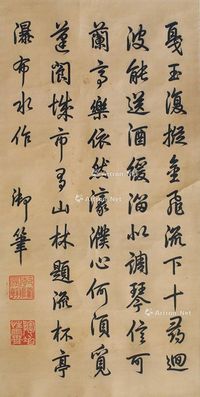 戛玉復摐金飛流下十尋迴
波能送酒緩溜似調琴信可
蘭亭樂依然濠濮心何須覓
蓬閬城市有山林題流杯亭
瀑布水作御筆